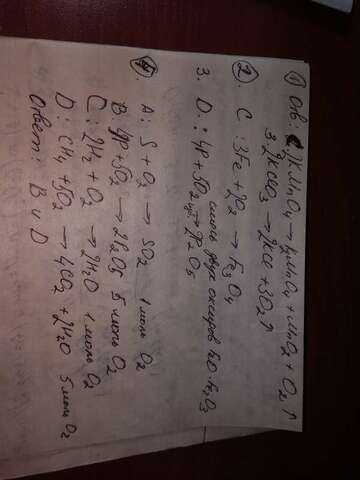 ① Ов: 2KMnO₄ → K₂MnO₄ + MnO₂ + O₂↑
3. 2KClO₃ → 2KCl + 3O₂↑
② C: 3Fe + 2O₂ → Fe₃O₄
смесь двух оксидов FeO·Fe₂O₃
3. D.: 4P + 5O₂ → 2P₂O₅
④ A: S + O₂ → SO₂ 1 моль O₂
B: 4P + 5O₂ → 2P₂O₅ 5 моль O₂
C: 2H₂ + O₂ → 2H₂O 1 моль O₂
D: CH₄ + 5O₂ → 4CO₂ + 2H₂O 5 моль O₂
Ответ: B и D